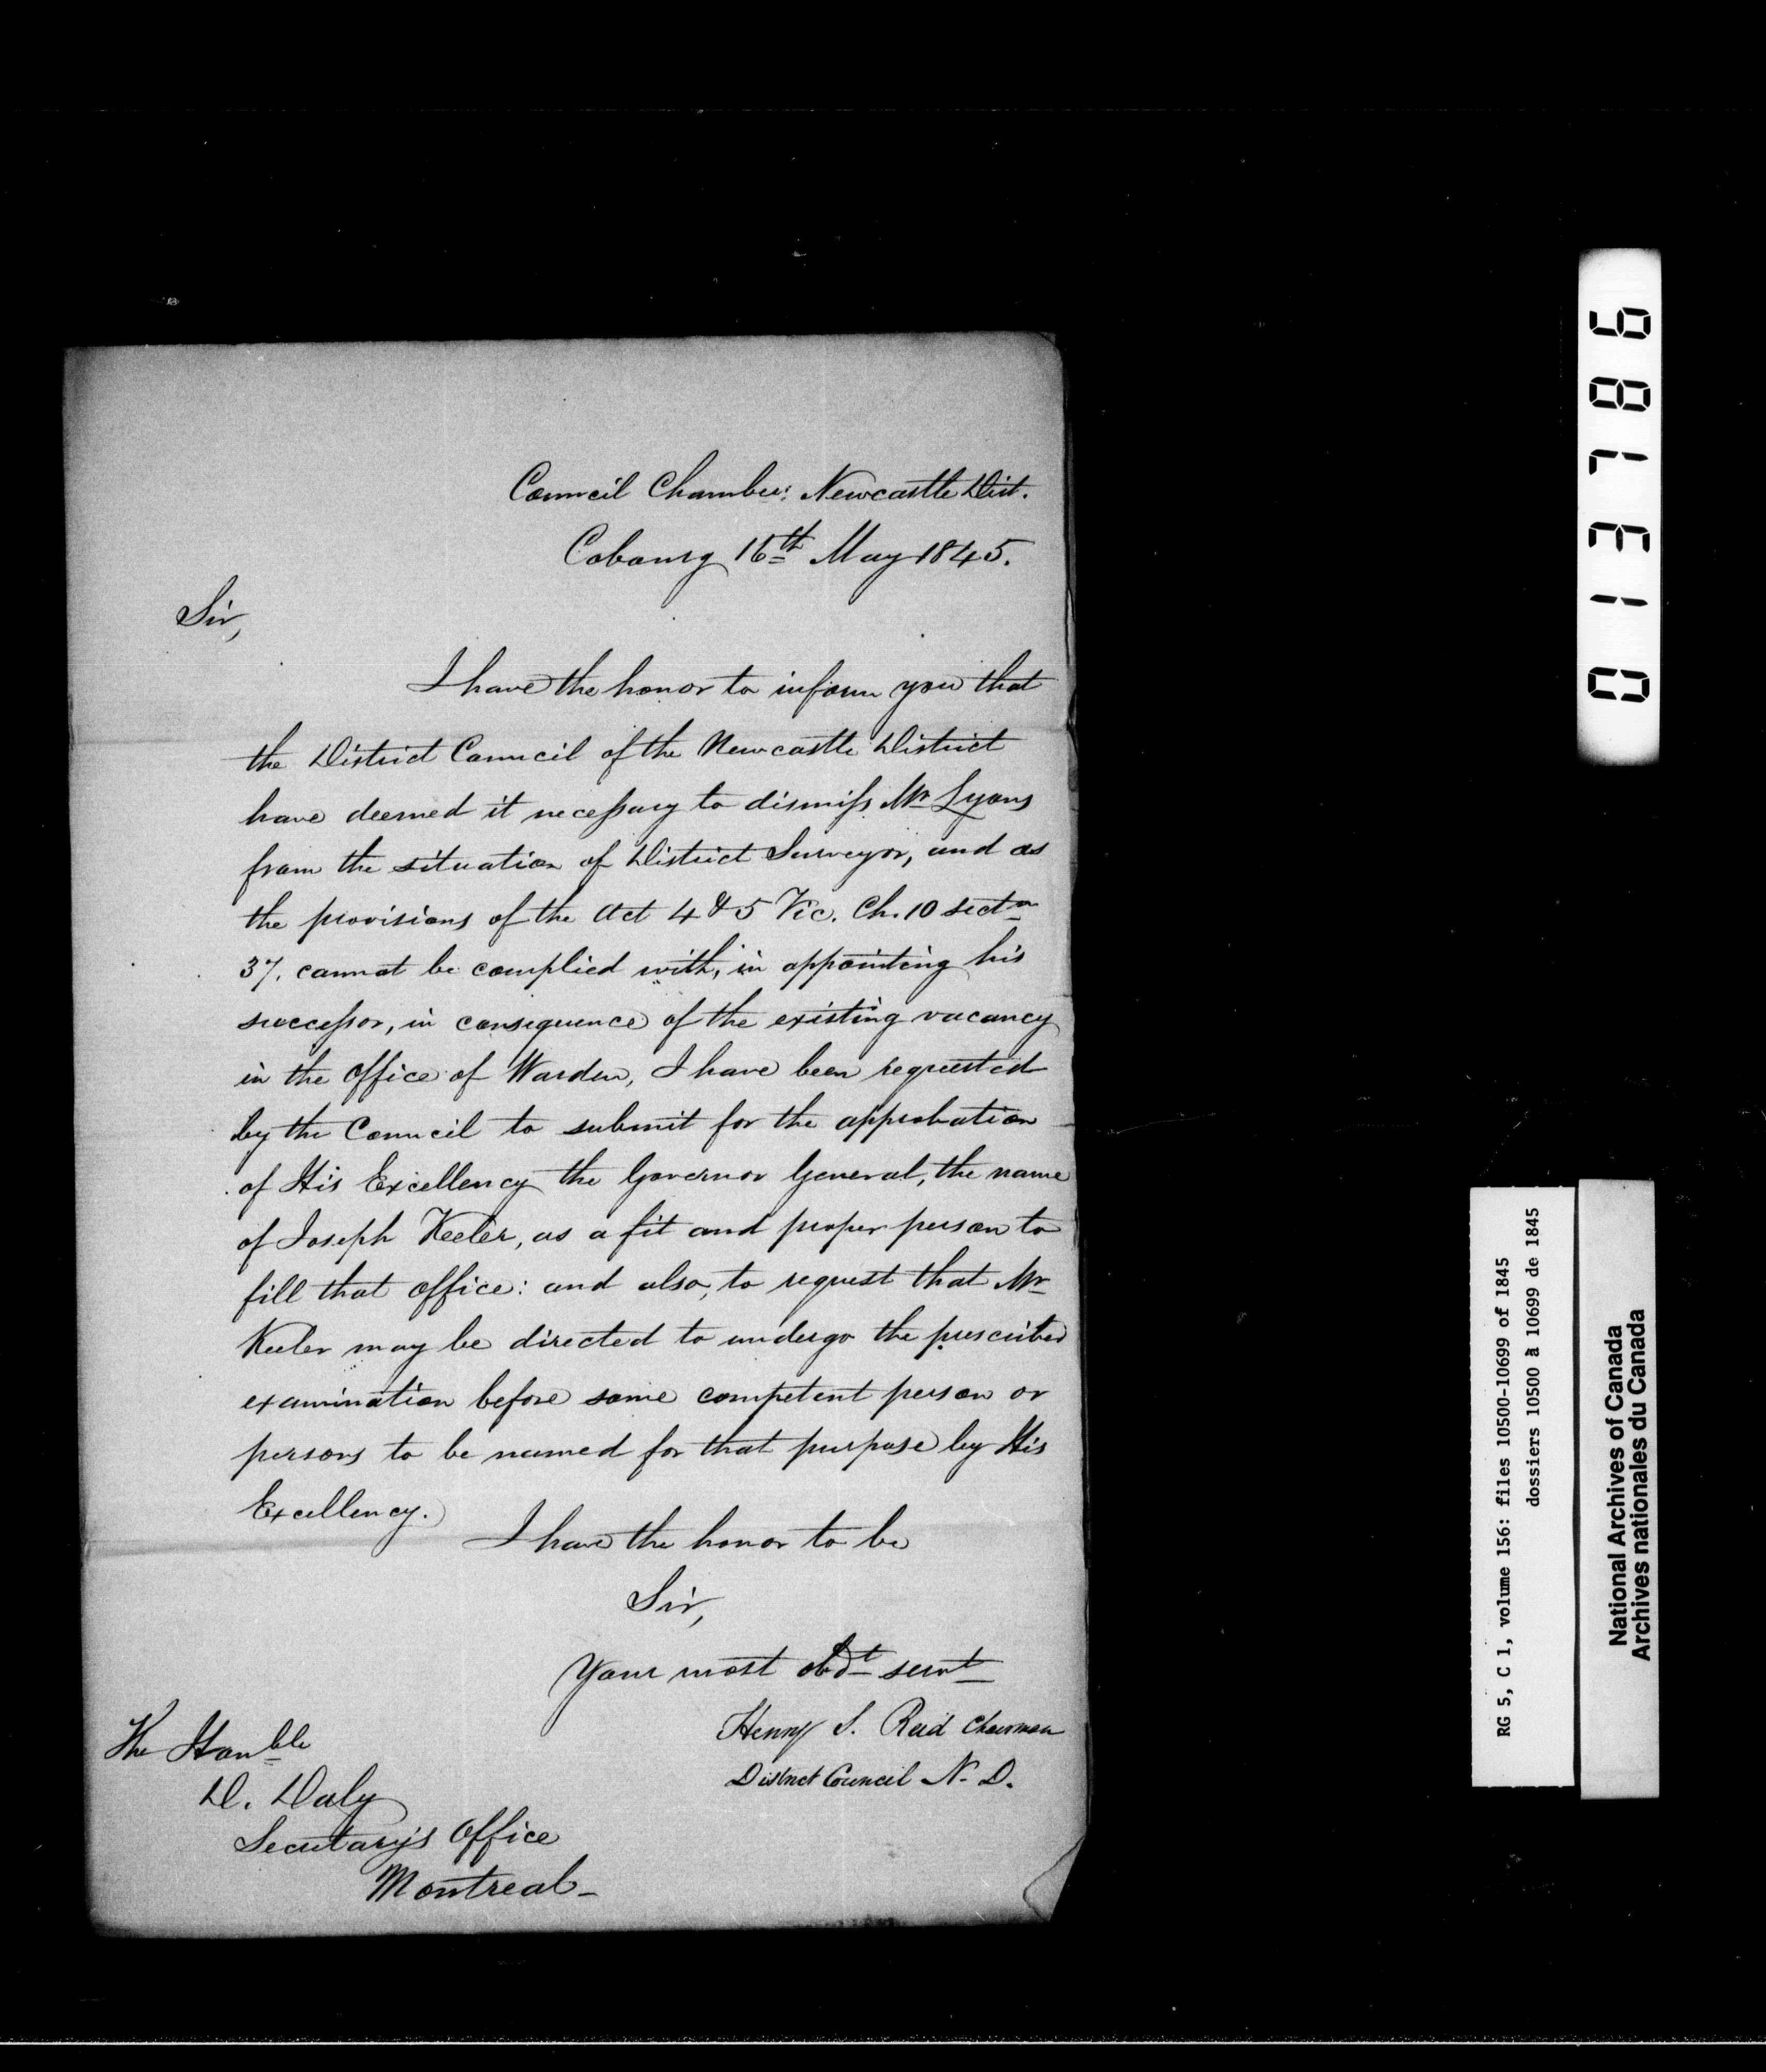 Council Chamber: Newcastle Dist.
Cobourg 16th May 1845.
Sir,
I have the honor to inform you that
the District Council of the Newcastle District
have deemed it necessary to dismiss Mr Lyons
from the situation of District Surveyor, and as
the provisions of the Act 4 & 5 Vic. Ch. 10 sectn
37. cannot be complied with, in appointing his
successor, in consequence of the existing vacancy
in the Office of Warden, I have been requested
by the Council to submit for the approbation
of His Excellency the Governor General, the name
of Joseph Keeler, as a fit and proper person to
fill that Office: and also, to request that Mr
Keeler may be directed to undergo the prescribed
examination before some competent person or
persons to be named for that purpose by His
Excellency.
I have the honor to be
Sir,
Your most obdt servt
Henry S. Reid Chairman
District Council N. D.
The Honble
D. Daly
Secretary's Office
Montreal-
013786
RG 5, C 1, volume 156: files 10500-10699 of 1845
dossiers 10500 à 10699 de 1845
National Archives of Canada
Archives nationales du Canada